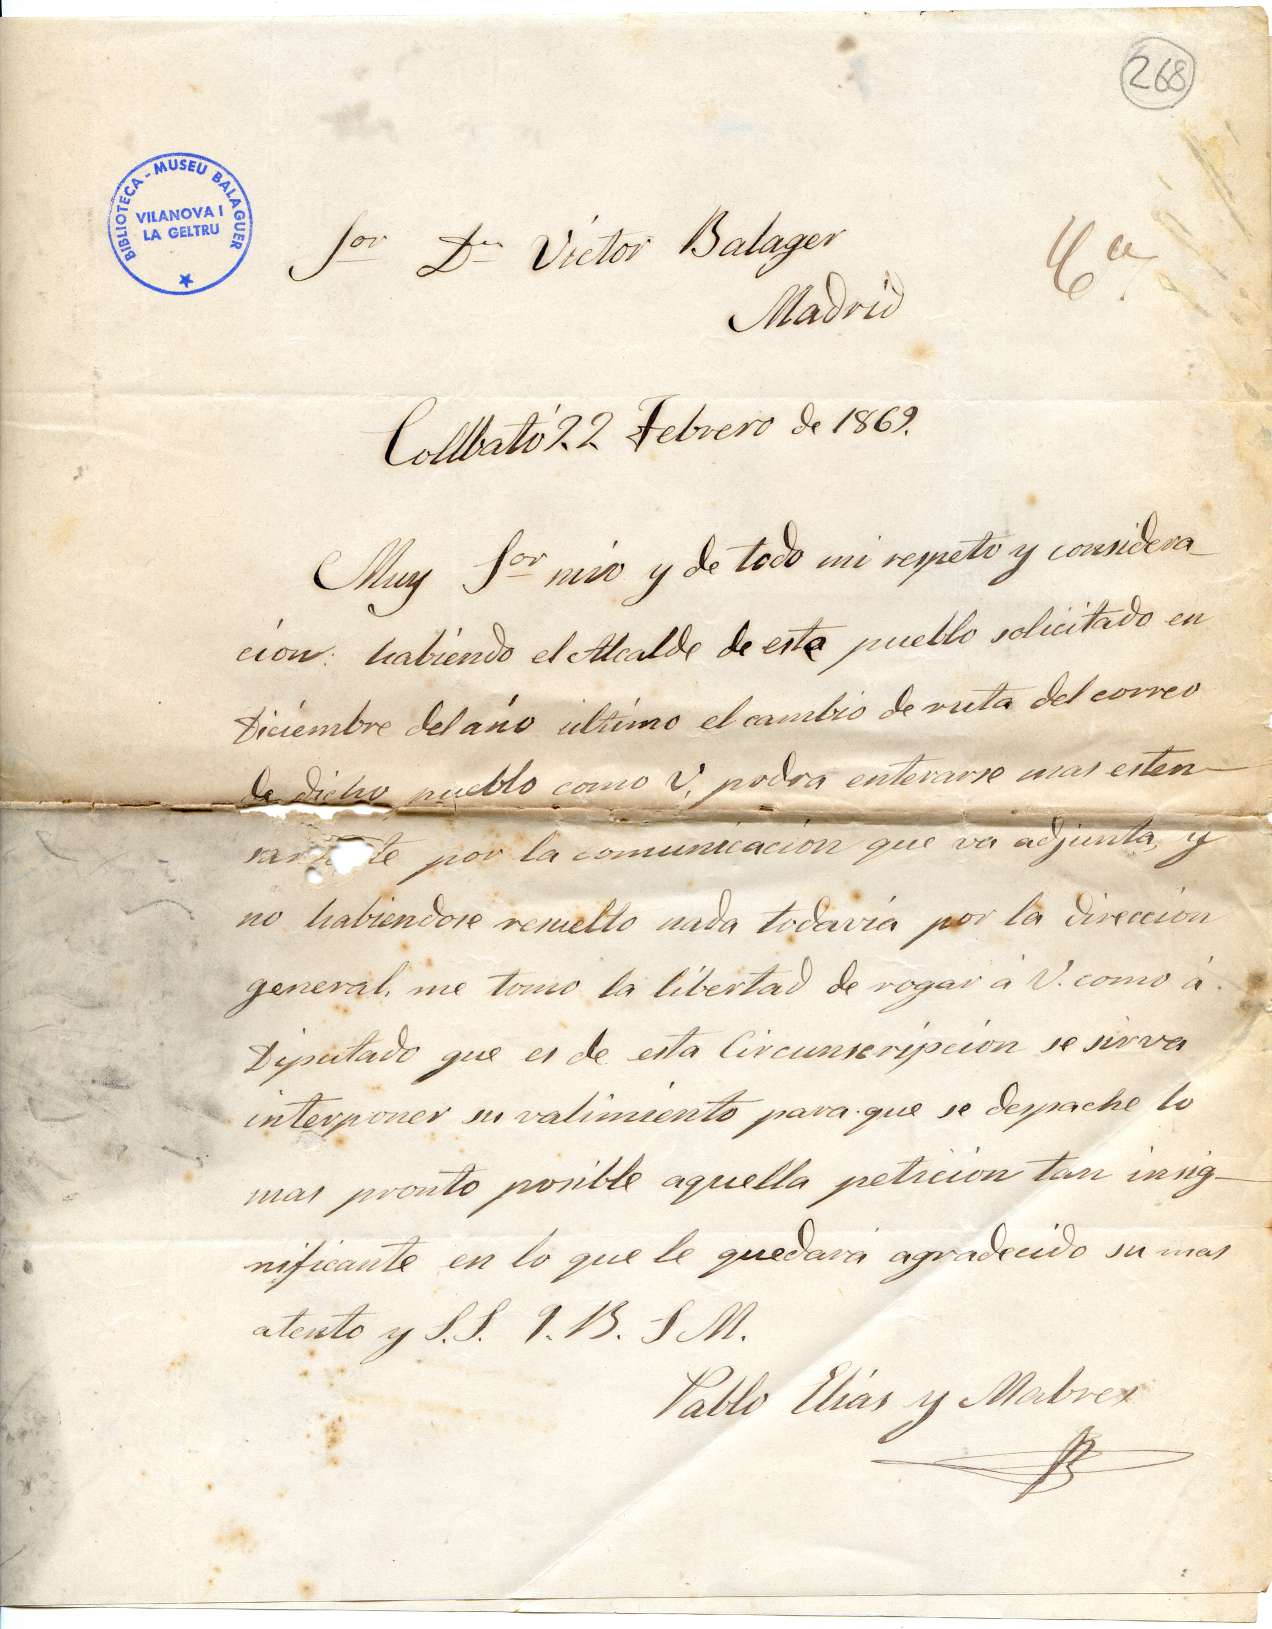 268
BIBLIOTECA - MUSEU BALAGUER
VILANOVA I
LA GELTRU
Sor Dn Victor Balager
Madrid
Collbató 22 Febrero de 1869.
Muy Sor mio y de todo mi respeto y considera
cion: habiendo el Alcalde de este pueblo solicitado en
Diciembre del año ultimo el cambio de ruta del correo
de dicho pueblo como V. podra enterarse mas esten
te por la comunicacion que va adjunta, y
no habiendose resuelto nada todavia por la direccion
general, me tomo la libertad de rogar á V. como á
Diputado que es de esta Circunscripcion se sirva
interponer su valimiento para que se despache lo
mas pronto posible aquella peticion tan insig-
nificante en lo que le quedará agradecido su mas
atento y S.S. Q. B. S M.
Pablo Elias y Mabres